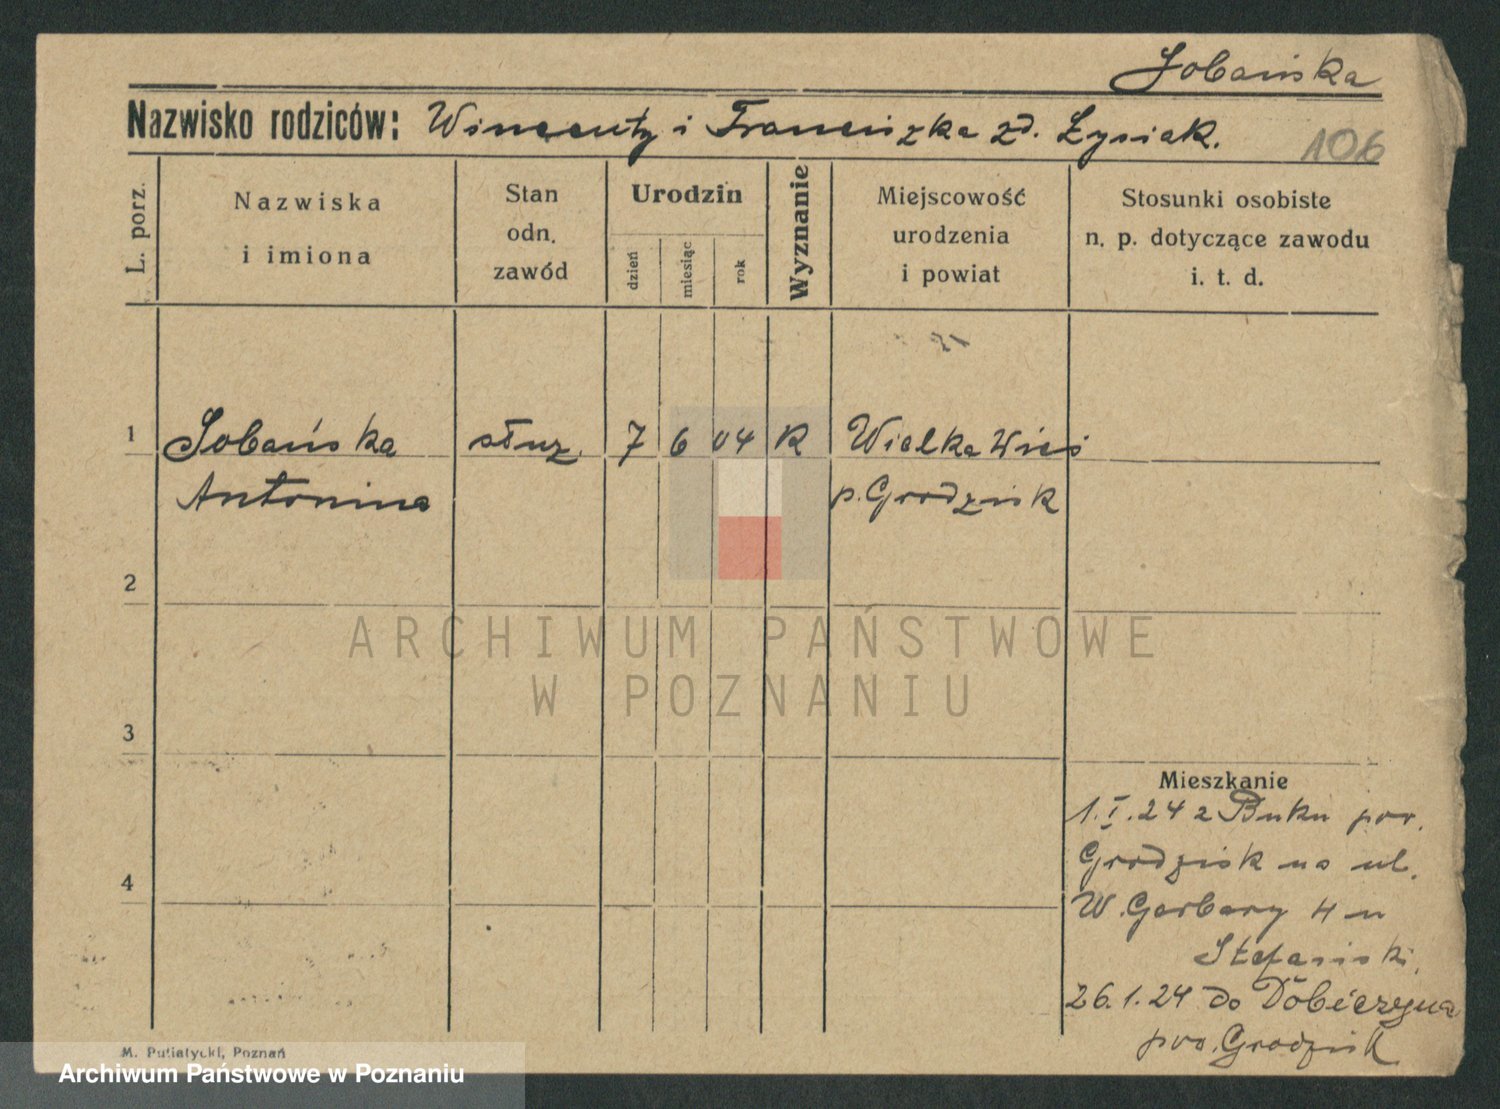 Sobańska
Nazwisko rodziców: Wincenty i Franciszka zd. Łysiak.
106
L. porz.
Nazwiska
i imiona
Stan
odn.
zawód
Urodzin
dzień
miesiąc
rok
Wyznanie
Miejscowość
urodzenia
i powiat
Stosunki osobiste
n. p. dotyczące zawodu
i. t. d.
1 Sobańska służ. 7 6 04 K Wielka Wieś
Antonina p. Grodzisk
2
ARCHIWUM PAŃSTWOWE
W POZNANIU
3
Mieszkanie
1.I.24 z Buku pow.
Grodzisk na ul.
4
W. Garbary 4 u
Stefański
26.1.24 do
pow. Grodzisk
M. Putiatycki, Poznań
Archiwum Państwowe w Poznaniu